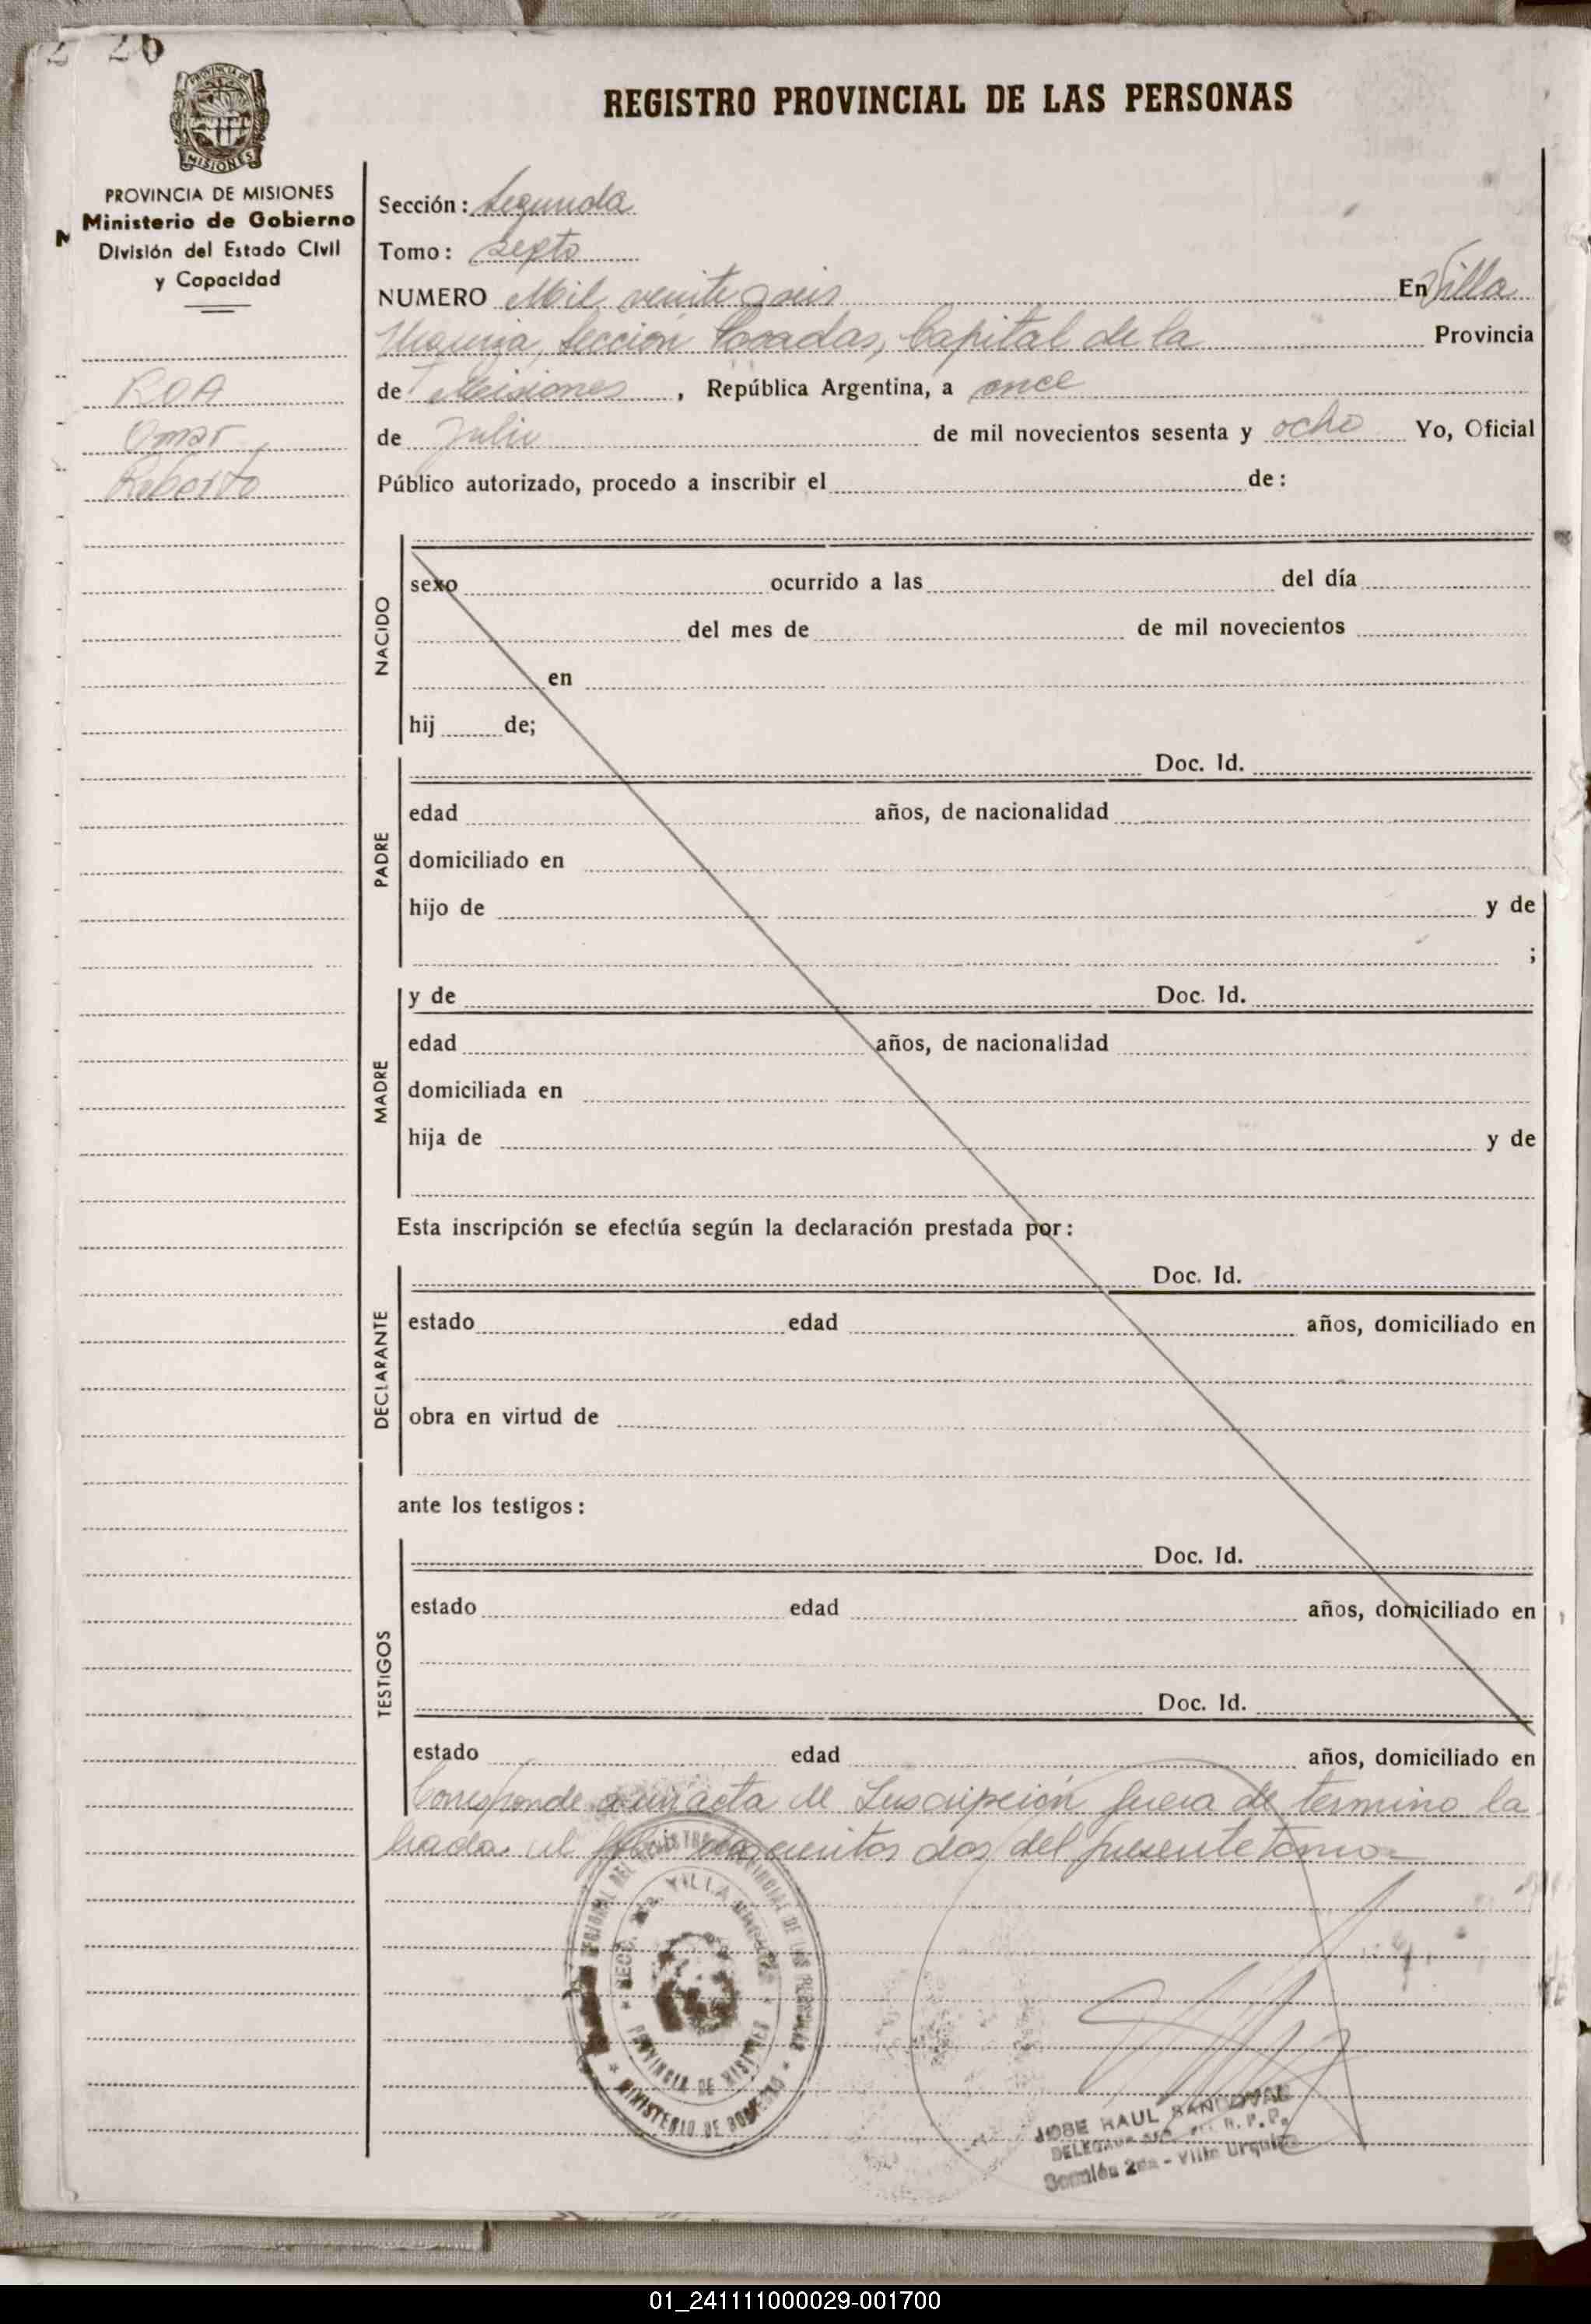 26
REGISTRO PROVINCIAL DE LAS PERSONAS
MISIONES
PROVINCIA DE MISIONES
Ministerio de Gobierno
División del Estado Civil
y Capacidad
ROA
Omar
Roberto
Sección: Segunda
Tomo: septo
NUMERO Mil veinte seis En Villa
Urquiza, Sección Posadas, Capital de la Provincia
de Misiones, República Argentina, a once
de Julio de mil novecientos sesenta y ocho Yo, Oficial
Público autorizado, procedo a inscribir el de:
NACIDO
sexo ocurrido a las del día
del mes de de mil novecientos
en
hij de;
PADRE
Doc. Id.
edad años, de nacionalidad
domiciliado en
hijo de y de
;
MADRE
y de Doc. Id.
edad años, de nacionalidad
domiciliada en
hija de y de
Esta inscripción se efectúa según la declaración prestada por:
DECLARANTE
Doc. Id.
estado edad años, domiciliado en
obra en virtud de
ante los testigos:
TESTIGOS
Doc. Id.
estado edad años, domiciliado en
Doc. Id.
estado edad años, domiciliado en
Corresponde a un acta de Inscripción fuera de termino la
brada al folio doscientos dos del presente tomo
VILLA
PROVINCIA DE MISIONES
MINISTERIO DE GOBIERNO
JOSE RAUL SANDOVAL
Sección 2da - Villa Urquiza
01_241111000029-001700